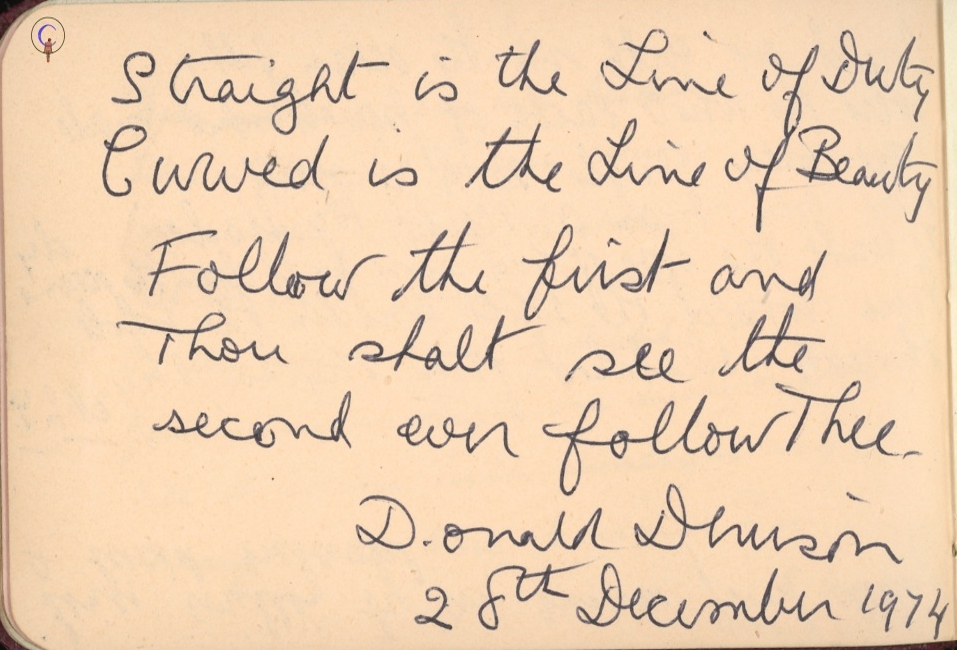 Straight is the Line of Duty
Curved is the Line of Beauty
Follow the first and
Thou shalt see the
second ever follow Thee.
D. onald Denison
28th December 1974